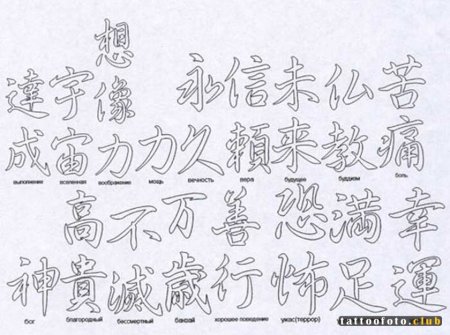 想
達 宇 像 永 信 未 仏 苦
成 宙 力 力 久 頼 来 教 痛
выполнение вселенная воображение мощь вечность вера будущее буддизм боль
高 不 万 善 恐 満 幸
神 貴 滅 歳 行 怖 足 運
бог благородный бессмертный банзай хорошее поведение ужас(террор)
tattoofoto.club